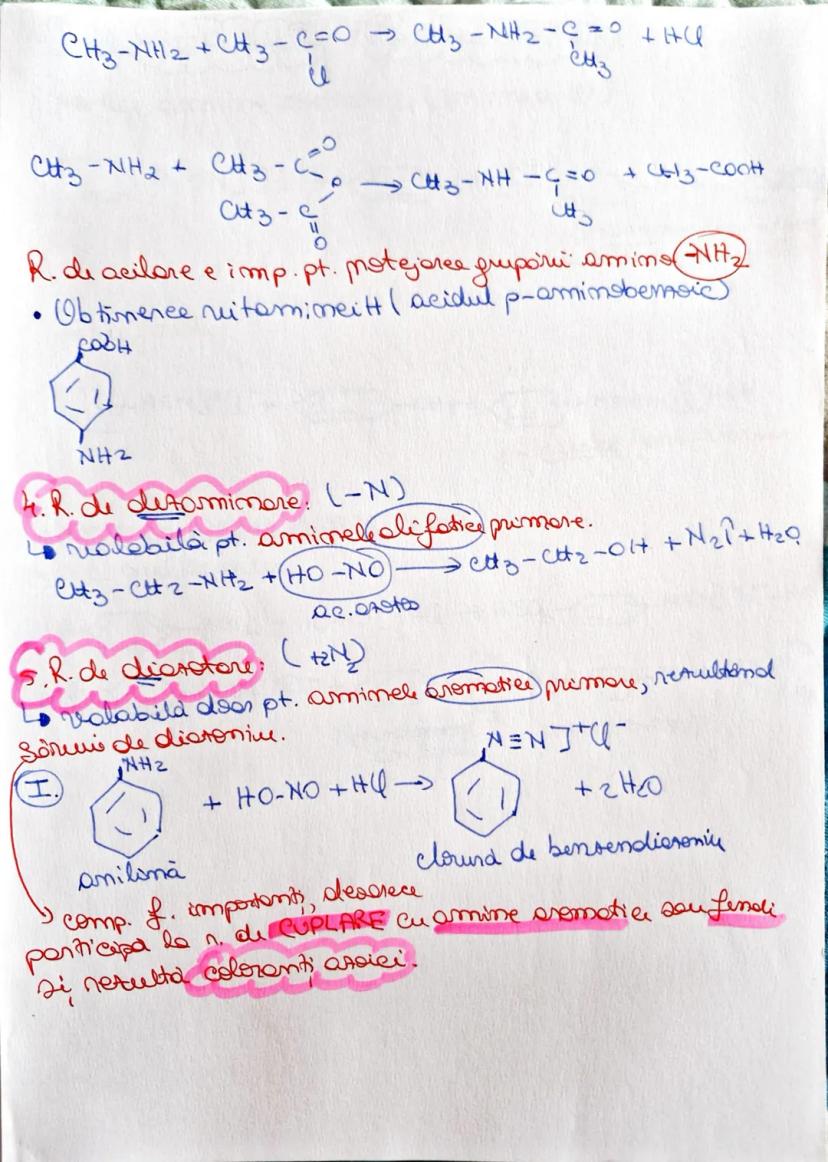 CH3-NH2 + CH3-C=O → CH3-NH2-C=O + HCl
Cl CH3
CH3-NH2 + CH3-C=O → CH3-NH-C=O + CH3-COOH
O
CH3-C CH3
O
R. de acilare e imp. pt. protejarea grupării amino -NH2
• Obtinerea vitaminei H (acidul p-aminobenzoic)
COOH
NH2
4. R. de dezaminare: (-N)
↳ valabilă pt. aminele alifatice primare.
CH3-CH2-NH2 + HO-NO → CH3-CH2-OH + N2↑ + H2O
ac. azotos
5. R. de diazotare: (+2N2)
↳ valabilă doar pt. aminele aromatice primare, rezultând
săruri de diazoniu.
I. NH2 + HO-NO + HCl → N≡N]+Cl- + 2H2O
anilină clorură de benzendiazoniu
comp. f. importanți, deoarece
participă la r. de CUPLARE cu amine aromatice sau fenoli
și rezultă coloranți azoici.